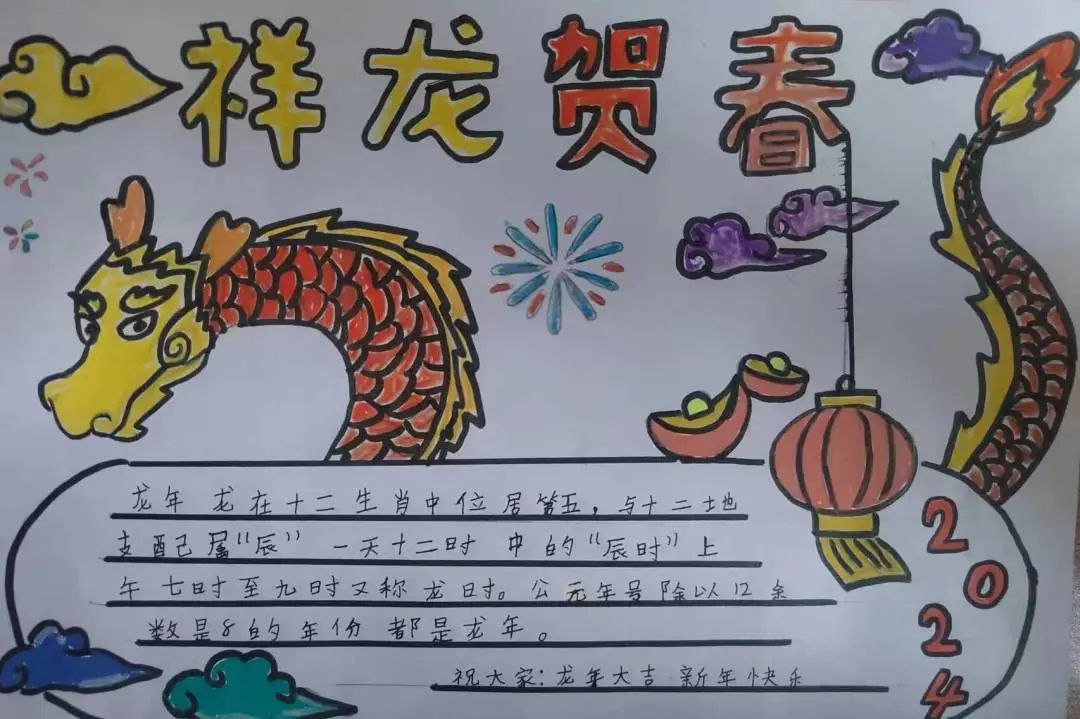 祥龙贺春
龙年 龙在十二生肖中位居第五，与十二地
支配己属“辰” 一天十二时 中的“辰时”上
午七时至九时又称龙时。公元年号除以12余
数是8的年份 都是龙年。
祝大家：龙年大吉 新年快乐
2024